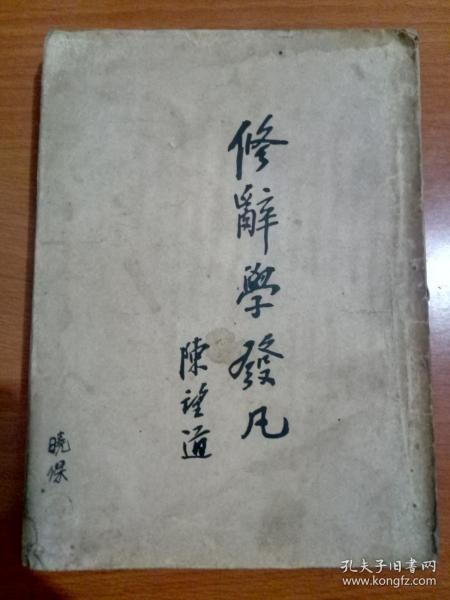 修辭學發凡
陳望道
曉保
孔夫子旧书网
www.kongfz.com